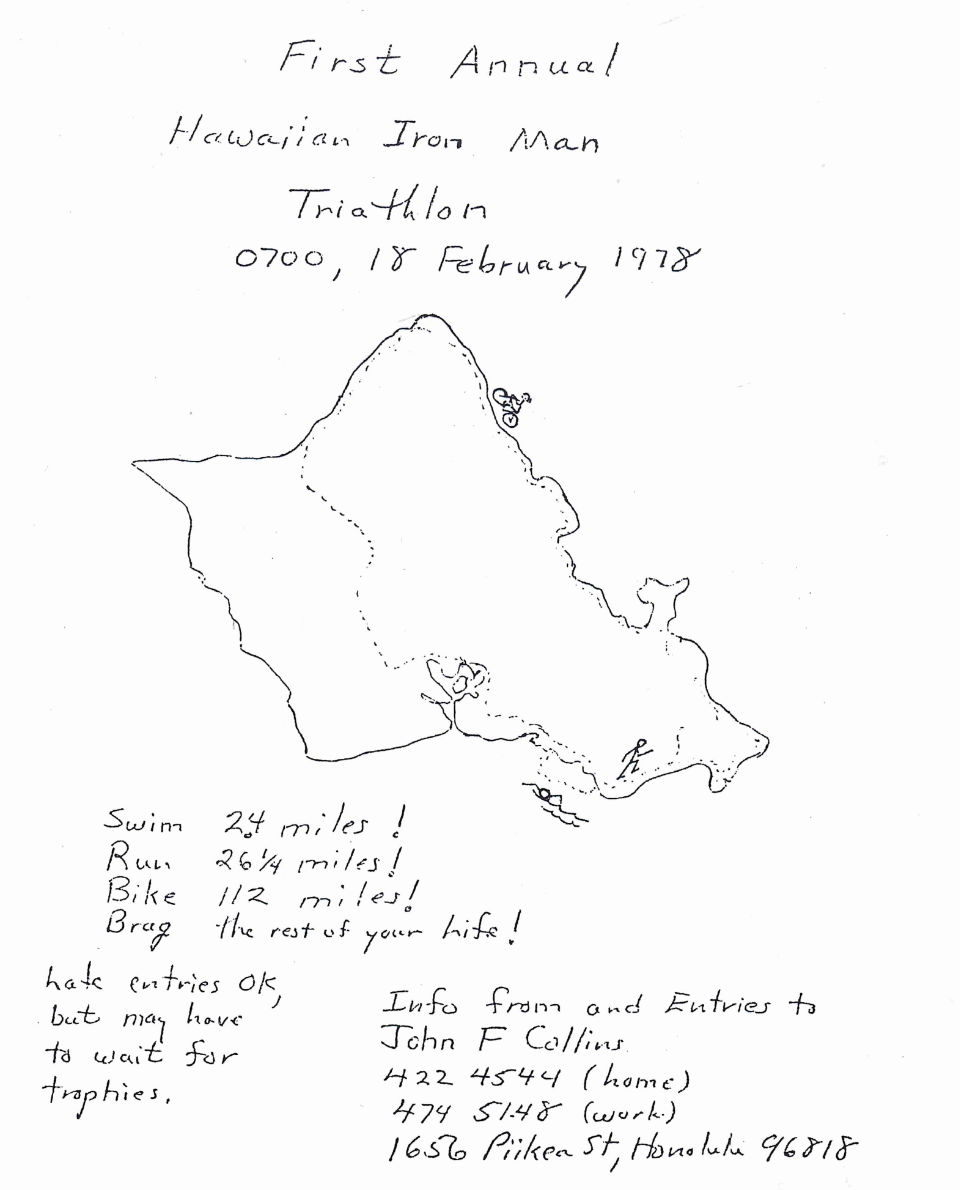 First Annual
Hawaiian Iron Man
Triathlon
0700, 18 February 1978
Swim 2.4 miles!
Run 26 1/4 miles!
Bike 112 miles!
Brag the rest of your Life!
Late entries OK,
but may have
to wait for
trophies.
Info from and Entries to
John F Collins
422 4544 (home)
474 5148 (work)
1656 Piikea St, Honolulu 96818